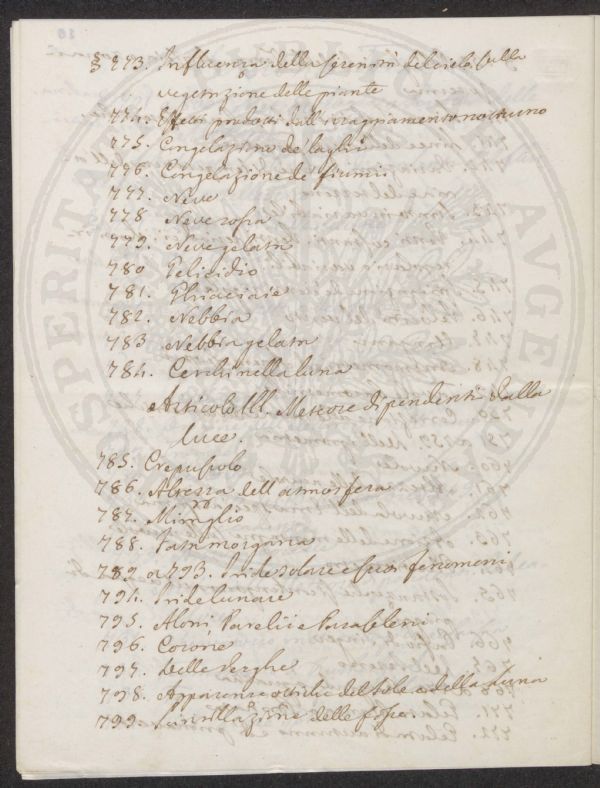 § 773. Influenza della serenità del cielo sulla
vegetazione delle piante
774. Effetti prodotti dall'irraggiamento notturno
775. Congelazione de' laghi
776. Congelazione de' fiumi
777. Neve
778 Neve rossa
779. Neve gelata
780 Gelicidio
781. Ghiacciaie
782. Nebbia
783 Nebbia gelata
784. Cerchi nella luna
Articolo III. Meteore dipendenti dalla
luce.
785. Crepuscolo
786. Altezza dell'atmosfera
787. Miraglio
788. Fata morgana
789 a 793. Iride solare e suoi fenomeni
794. Iride lunare
795. Aloni, Parelii e Paraseleni
796. Corone
797. Delle Verghe
798. Apparenze ottiche del Sole e della Luna
799. Scintillazione delle stelle